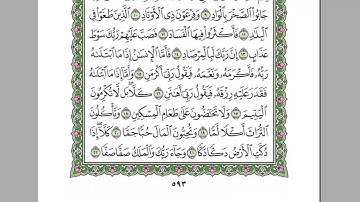 جَابُوا۟ ٱلصَّخْرَ بِٱلْوَادِ ۝٩ وَفِرْعَوْنَ ذِى ٱلْأَوْتَادِ ۝١٠ ٱلَّذِينَ طَغَوْا۟ فِى
ٱلْبِلَٰدِ ۝١١ فَأَكْثَرُوا۟ فِيهَا ٱلْفَسَادَ ۝١٢ فَصَبَّ عَلَيْهِمْ رَبُّكَ سَوْطَ
عَذَابٍ ۝١٣ إِنَّ رَبَّكَ لَبِٱلْمِرْصَادِ ۝١٤ فَأَمَّا ٱلْإِنسَٰنُ إِذَا مَا ٱبْتَلَىٰهُ
رَبُّهُۥ فَأَكْرَمَهُۥ وَنَعَّمَهُۥ فَيَقُولُ رَبِّىٓ أَكْرَمَنِ ۝١٥ وَأَمَّآ إِذَا مَا ٱبْتَلَىٰهُ
فَقَدَرَ عَلَيْهِ رِزْقَهُۥ فَيَقُولُ رَبِّىٓ أَهَٰنَنِ ۝١٦ كَلَّا ۖ بَل لَّا تُكْرِمُونَ
ٱلْيَتِيمَ ۝١٧ وَلَا تَحَٰٓضُّونَ عَلَىٰ طَعَامِ ٱلْمِسْكِينِ ۝١٨ وَتَأْكُلُونَ
ٱلتُّرَاثَ أَكْلًا لَّمًّا ۝١٩ وَتُحِبُّونَ ٱلْمَالَ حُبًّا جَمًّا ۝٢٠ كَلَّآ إِذَا
دُكَّتِ ٱلْأَرْضُ دَكًّا دَكًّا ۝٢١ وَجَآءَ رَبُّكَ وَٱلْمَلَكُ صَفًّا صَفًّا ۝٢٢
٥٩٣